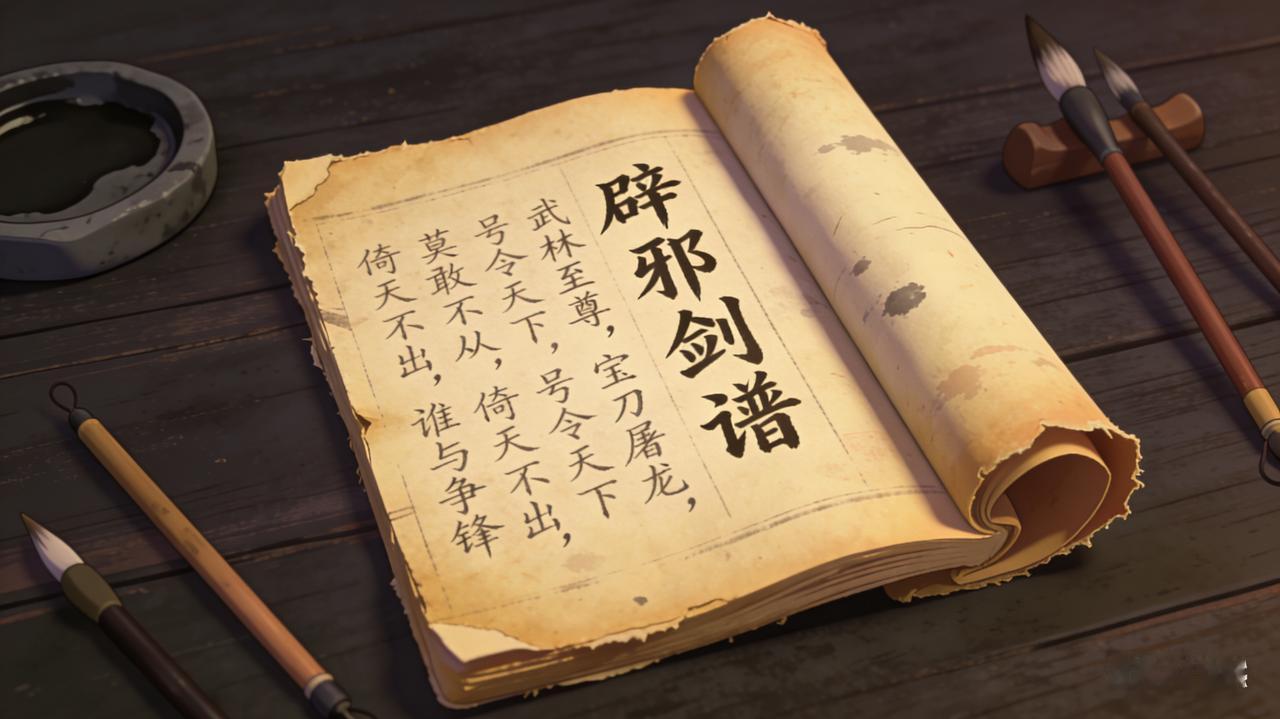 辟邪剑谱
武林至尊，宝刀屠龙，
号令天下，号令天下
莫敢不从，倚天不出，
倚天不出，谁与争锋